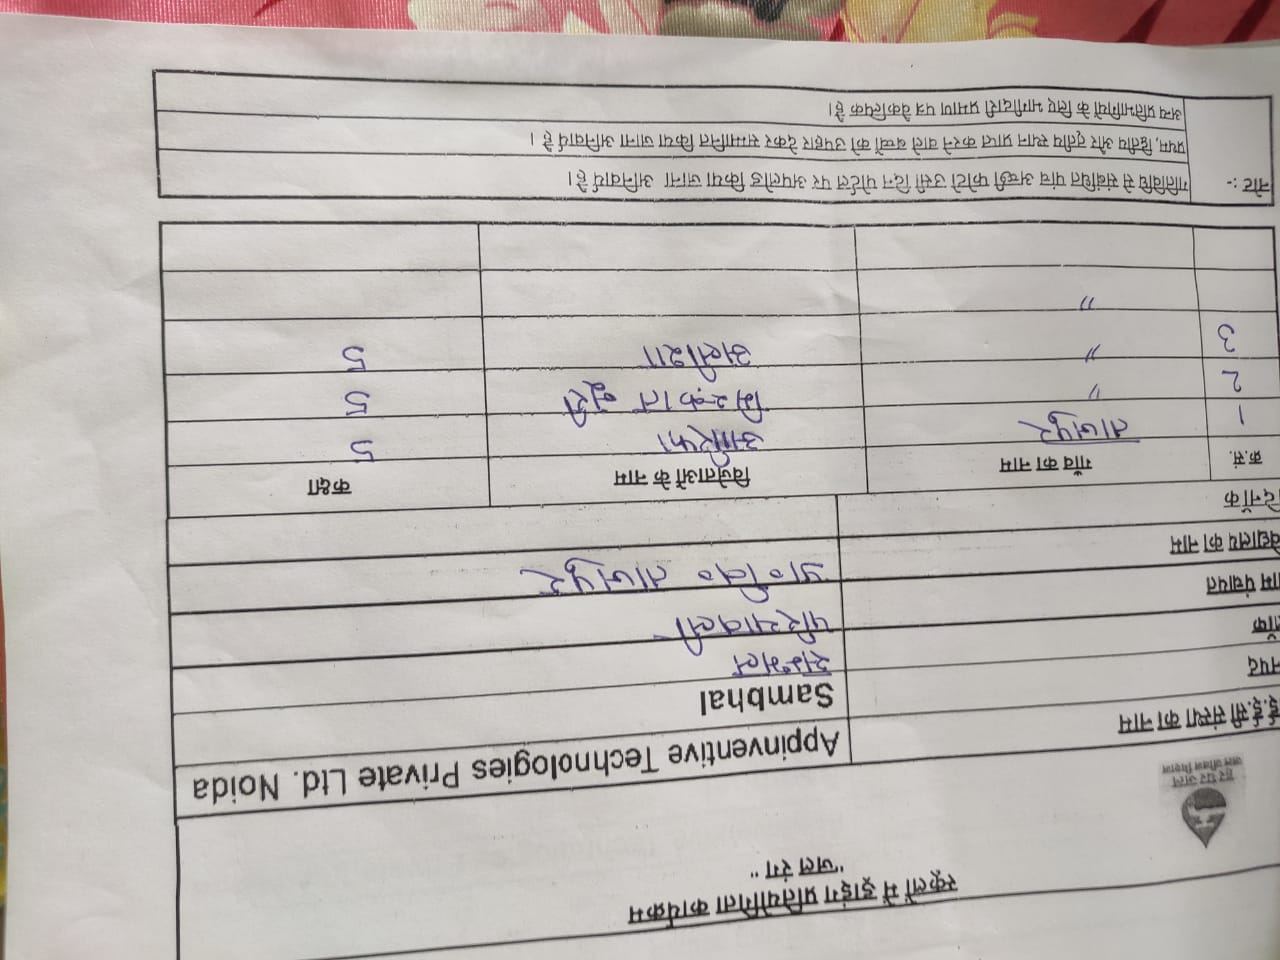 स्कूलों में ड्राइंग प्रतियोगिता कार्यक्रम
"जल रंग"
हर घर जल
जल जीवन मिशन
ई.ई.सी संस्था का नाम Appinventive Technologies Private Ltd. Noida
नपद Sambhal
लॉक सम्भल
ाम पंचायत
वेद्यालय का नाम प्रा० वि० ताजपुर
दिनाँक
क्र.सं. गाँव का नाम विजेताओं के नाम कक्षा
1 ताजपुर आरिफा 5
2 " मिस्कात नूरी 5
3 " अलीशा 5
"
नोट :- गतिविधि से संबंधित पांच अच्छी फोटो उसी दिन पोर्टल पर अपलोड किया जाना अनिवार्य है।
प्रथम, द्वितीय और तृतीय स्थान प्राप्त करने वाले बच्चों को उपहार देकर सम्मानित किया जाना अनिवार्य है ।
अन्य प्रतिभागियों के लिए भागीदारी प्रमाण पत्र वैकल्पिक है।